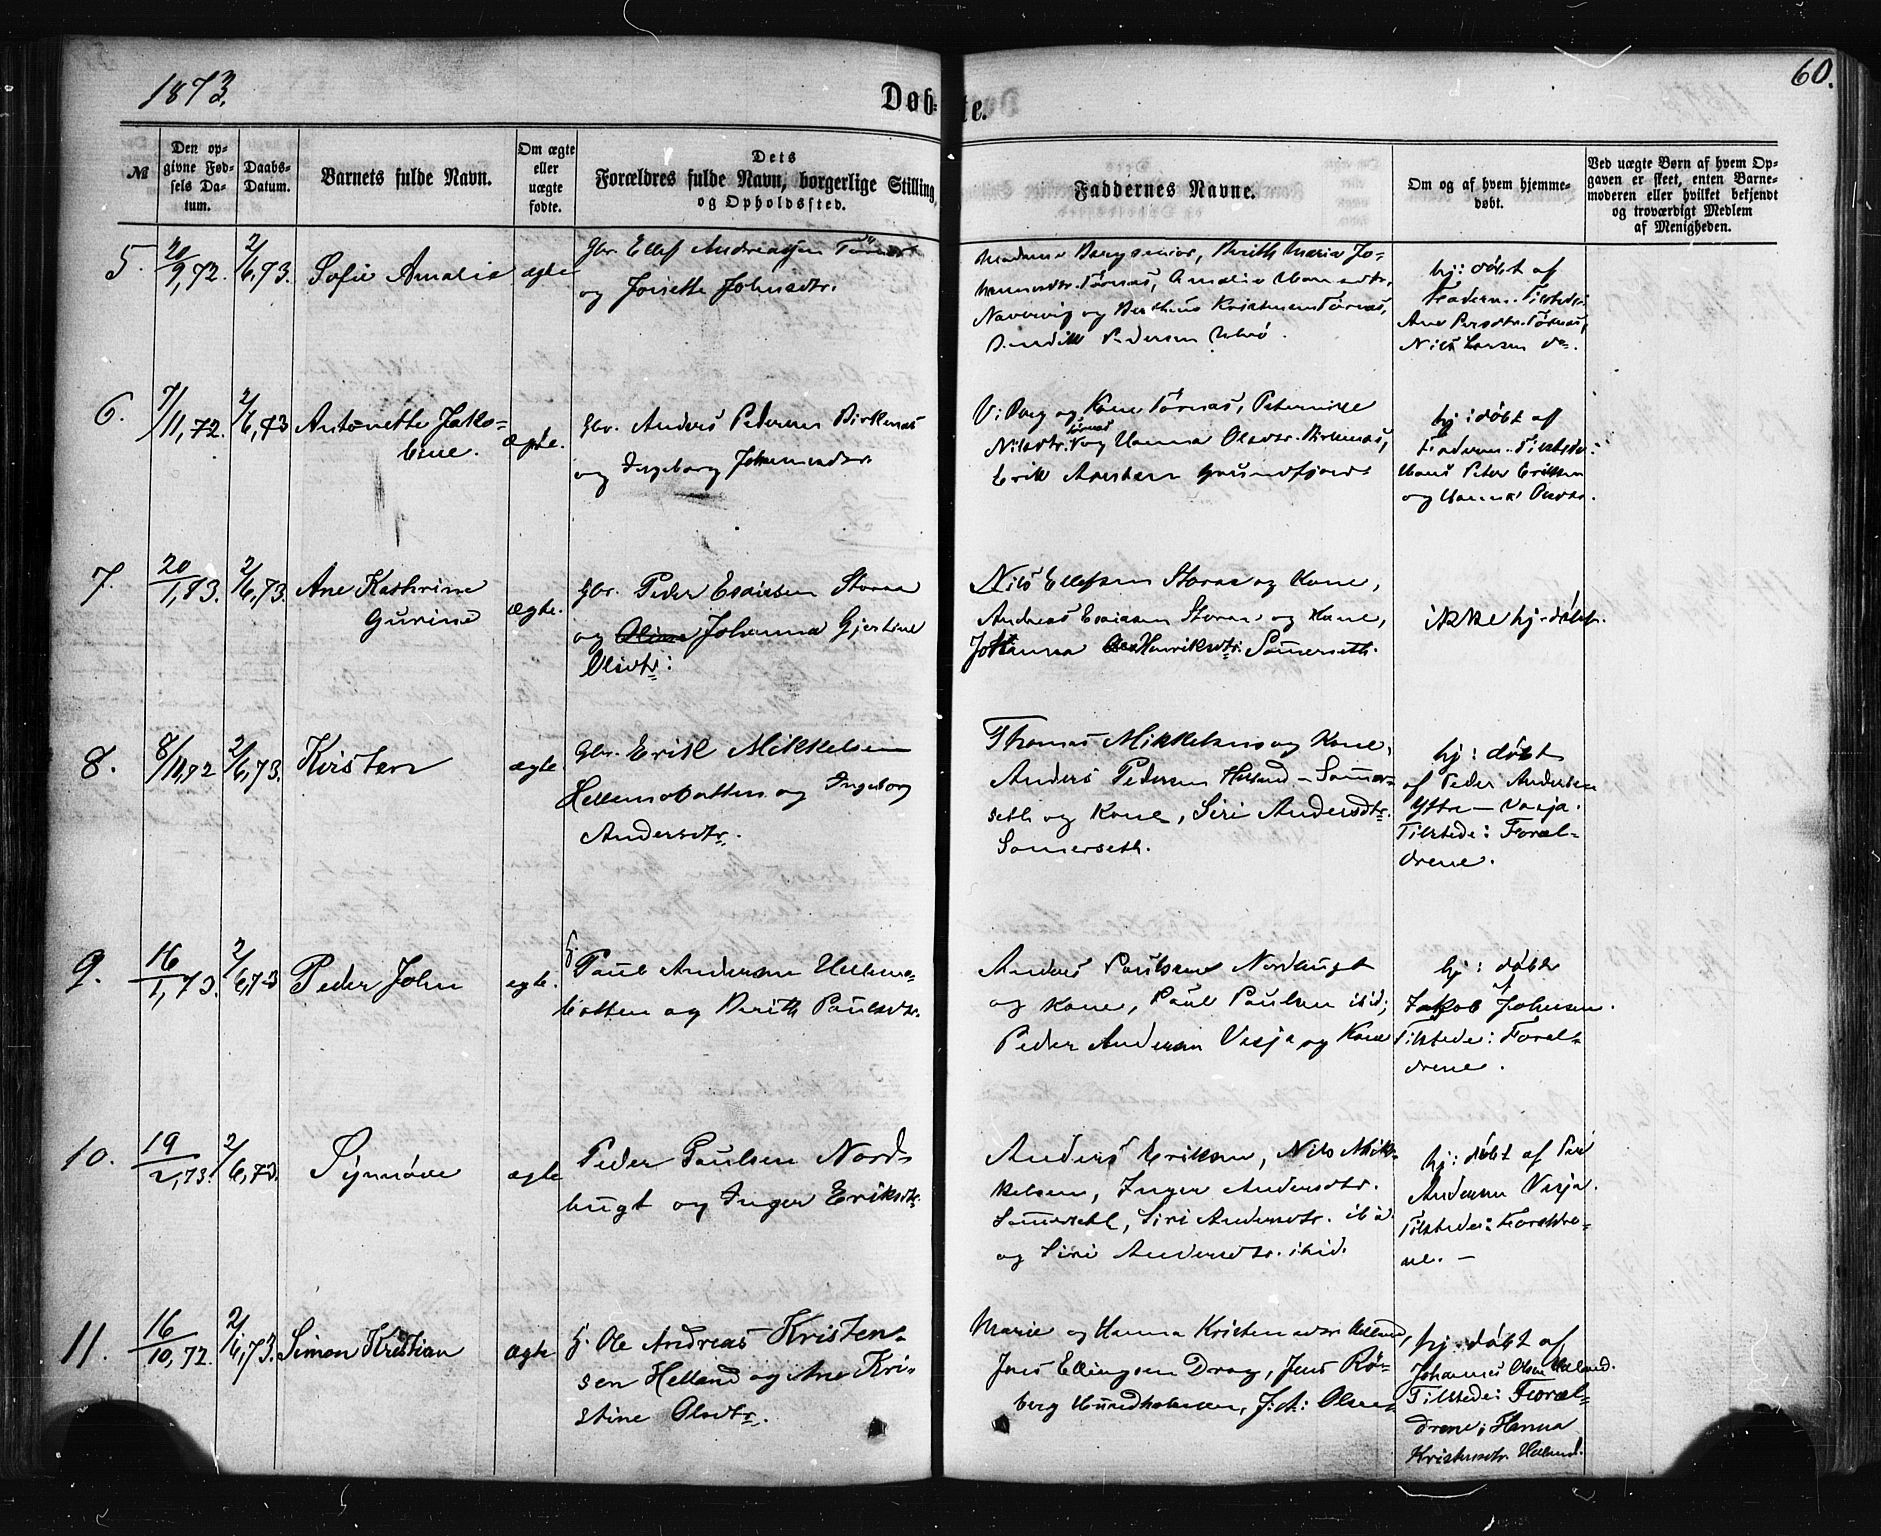 1873.
Døb-
te.
60.
№
Den op-
givne Fød-
sels Da-
tum.
Daabs-
Datum.
Barnets fulde Navn.
Om ægte
eller
uægte
fødte.
Dets
Forældres fulde Navn, borgerlige Stilling,
og Opholdssted.
Faddernes Navne.
Om og af hvem hjemme-
døbt.
Ved uægte Børn af hvem Op-
gaven er skeet, enten Barne-
moderen eller hvilket bekjendt
og troværdigt Medlem
af Menigheden.
5.
20/9,72.
2/6,73.
Sofie Amalie
ægte
Gbr. Ellef Andreassen Tørnæs
og Josette Johnsdtr.
Madame Berg senior, Berith Maria Jo-
hannesdtr. Tørnæs, Amalie Hansdtr.
og Bertheus Kristensen Tørnæs,
Bendik Pedersen
hj: døbt af
Tilstede:
Ane Persdtr. Tørnæs,
Nils Larsen do.
6.
7/11,72.
2/6,73
Antonette Jako-
bine.
ægte.
Gbr. Anders Pedersen Birkenæs
og Ingeborg Johannesdtr.
V: Berg og Kone Tørnæs, Peternille
Nilsdtr. Tørnæs og Hanna Olsdtr. Birkenæs,
Erik
hj: døbt af
Tilstede:
Hans Peter Eriksen
og Hanna Olsdtr.
7.
20/1,73.
2/6,73.
Ane Kathrine
Gurine
ægte.
Gbr. Peder Esaiasen Storaa
og Johanna Gjertine
Olsdtr:
Nils Ellefsen Storaa og Kone,
Andreas Esaiasen Storaa og Kone,
Johanna Henriksdtr. Somerseth.
ikke hj. døbt.
8.
8/11,72
2/6,73.
Kirsten
ægte.
Gbr. Erik Mikkelsen
Hellemobotten og Ingeborg
Andersdtr.
Thomas Mikkelsen og Kone,
Anders Pedersen Helland - Somer-
seth og Kone, Siri Andersdtr.
Somerseth.
hj: døbt
af Peder Andersen
Vasja.
Tilstede: Foræl-
drene.
9.
16/1,73.
2/6,73
Peder John
ægte.
G. Paul Andersen Hellemo-
botten og Berith Paulsdtr.
Anders Paulsen Nordbugt
og Kone, Paul Paulsen ibid;
Peder Andersen Vasja og Kone
hj: døbt
af
Jakob Johnsen.
Tilstede: Foræl-
drene.
10.
19/2,73.
2/6,73.
Synnøve
ægte
Peder Paulsen Nord-
bugt og Inger Eriksdtr.
Anders Eriksen, Nils Mik-
kelsen, Inger Andersdtr.
Somerseth, Siri Andersdtr. ibid
og Siri Andersdtr. ibid.
hj: døbt af Per
Andersen Vasja.
Tilstede: Forældre-
ne. -
11.
16/10,72.
2/6,73.
Simon Kristian
ægte
G. Ole Andreas Kristen-
sen Helland og Ane Kri-
stine Olsdtr.
Marie og Hanna Kristensdtr. Helland,
Jens Ellingsen Drag, Jens Rø-
berg Hundholmen, J: A: Olsen
hj: døbt af
Johannes Olsen Helland.
Tilstede: Foræl-
drene; Hanna
Kristensdtr. Helland.